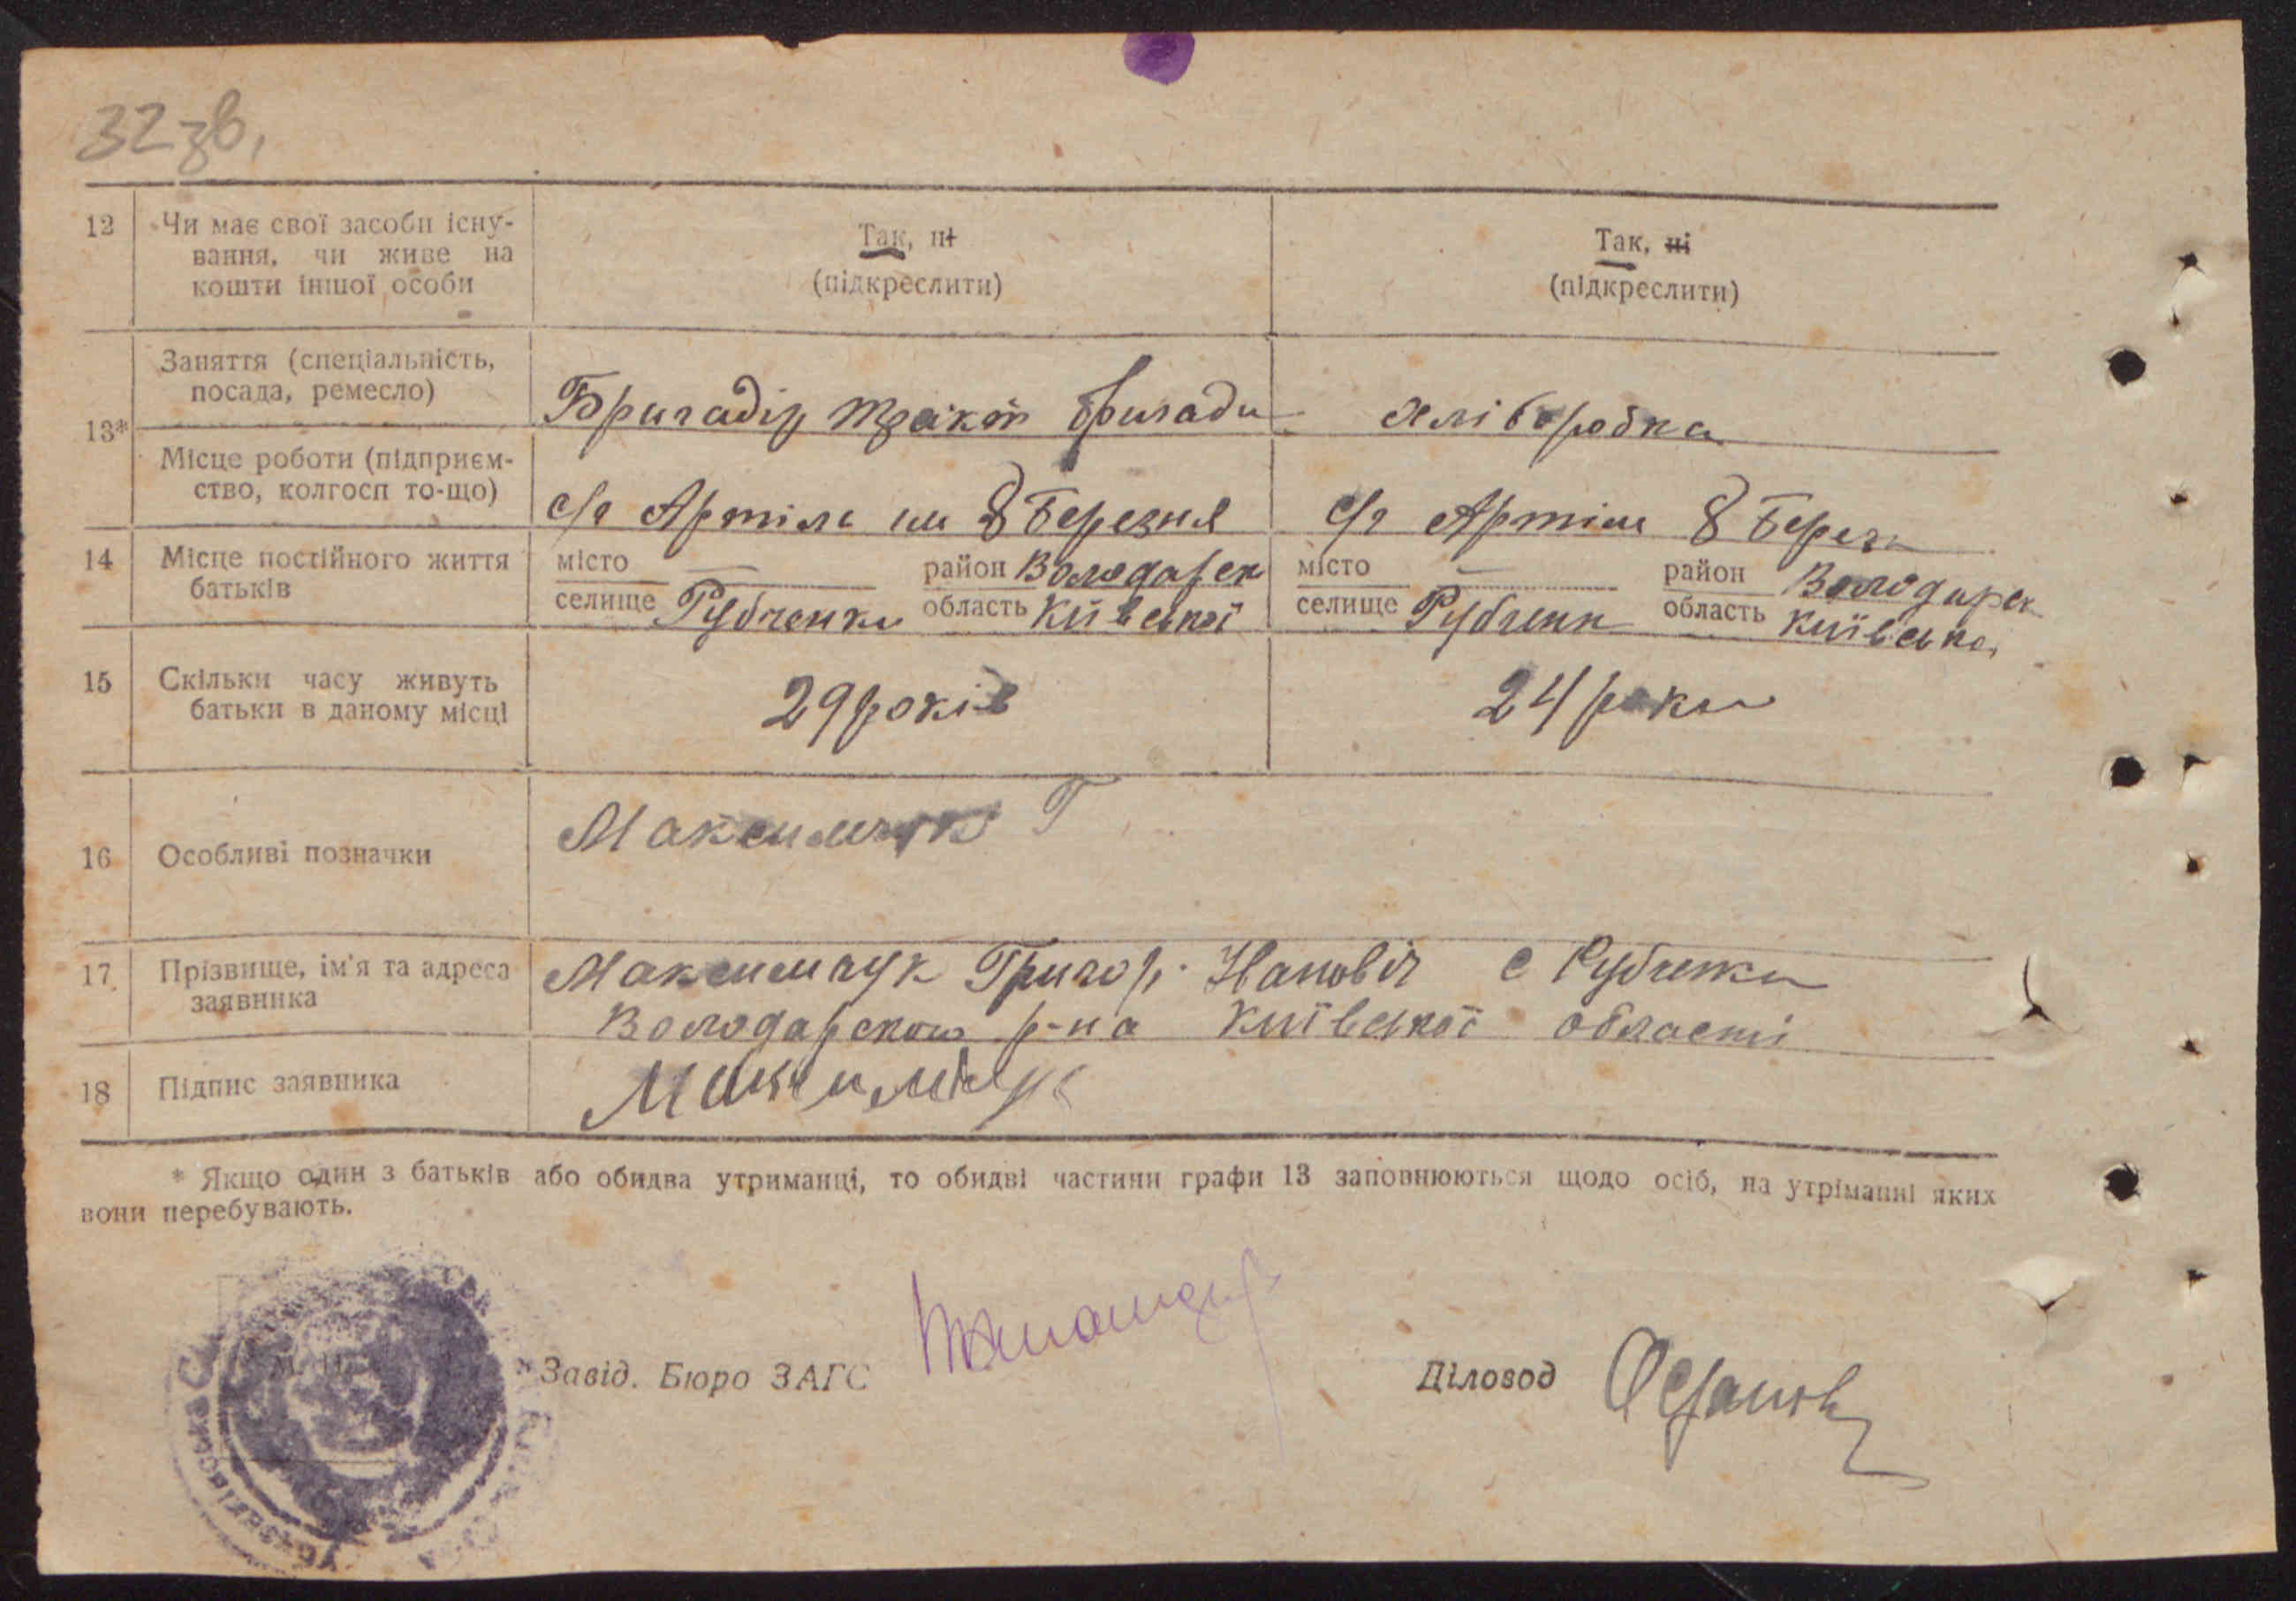 32 зв.
12 Чи має свої засоби існу-
вання, чи живе на
кошти іншої особи
Так, ні
(підкреслити)
Так, ні
(підкреслити)
13*
Заняття (спеціальність,
посада, ремесло)
Бригадір тракт бригади
хліборобка
Місце роботи (підприєм-
ство, колгосп то-що)
с/г Артіль им 8 Березня
с/г Артіль 8 Берез
14 Місце постійного життя
батьків
місто — район Володарск
селище Рубченки область Київської
місто — район Володарск
селище Рубченк область Київсько
15 Скільки часу живуть
батьки в даному місці
29 років
24 роки
16 Особливі позначки
Максимчук Г
17 Прізвище, ім'я та адреса
заявника
Максимчук Григор. Иванович с Рубченки
Володарського р-на Київської області
18 Підпис заявника
Максимчук
* Якщо один з батьків або обидва утриманці, то обидві частини графи 13 заповнюються щодо осіб, на утріманні яких
вони перебувають.
М. П.
Завід. Бюро ЗАГС
Діловод